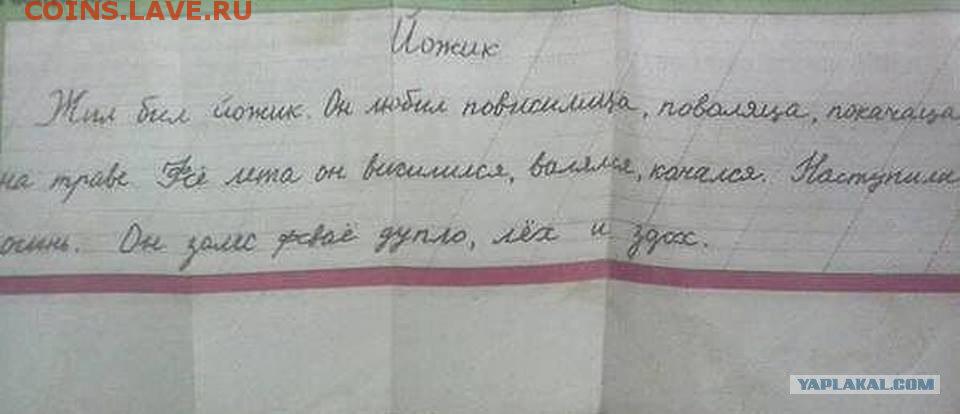 COINS.LAVE.RU
Йожик
Жил был йожик. Он любил повисилица, поваляца, покачаца
на траве. Фсё лета он висилился, валялся, качался. Наступила
осинь. Он залес фсваё дупло, лёх и здох.
YAPLAKAL.COM